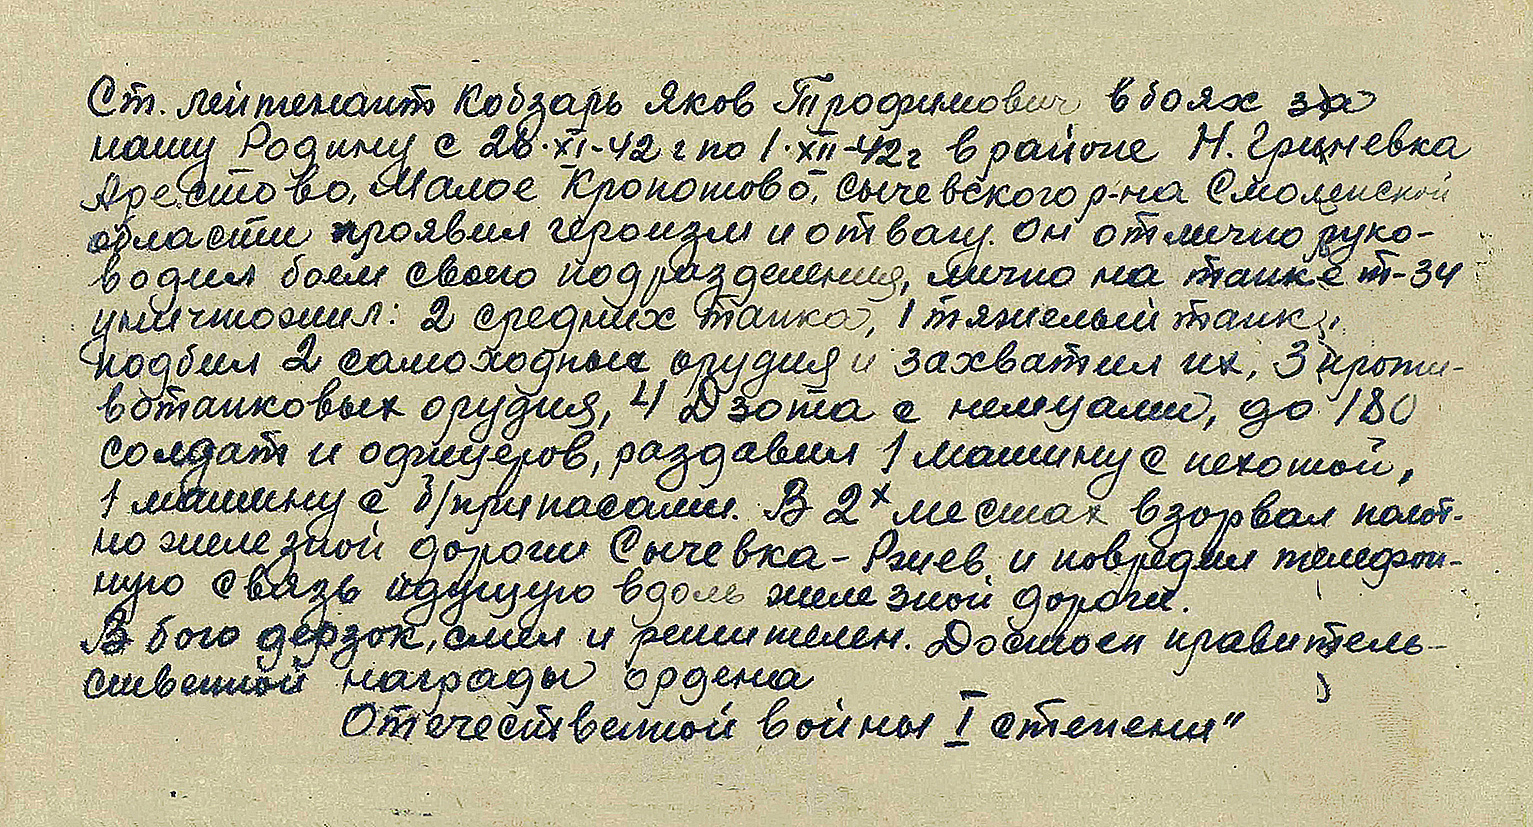 Ст. лейтенант Кобзарь Яков Трофимович "в боях за
нашу Родину с 26·XI-42 г по 1·XII-42г в районе Н. Гриневка
Арестово, Малое Кропотово, Сычевского р-на Смоленской
области проявил героизм и отвагу. Он отлично руко-
водил боем своего подразделения, лично на танке Т-34
уничтожил: 2 средних танка, 1 тяжелый танк,
подбил 2 самоходные орудия и захватил их, 3 проти-
вотанковых орудия, 4 Дзота с немцами, до 180
солдат и офицеров, раздавил 1 машину с пехотой,
1 машину с б/припасами. В 2х местах взорвал полот-
но железной дороги Сычевка-Ржев и повредил телефон-
ную связь идущую вдоль железной дороги.
В бою дерзок, смел и решителен. Достоен правитель-
ственной награды ордена
Отечественной войны I степени"